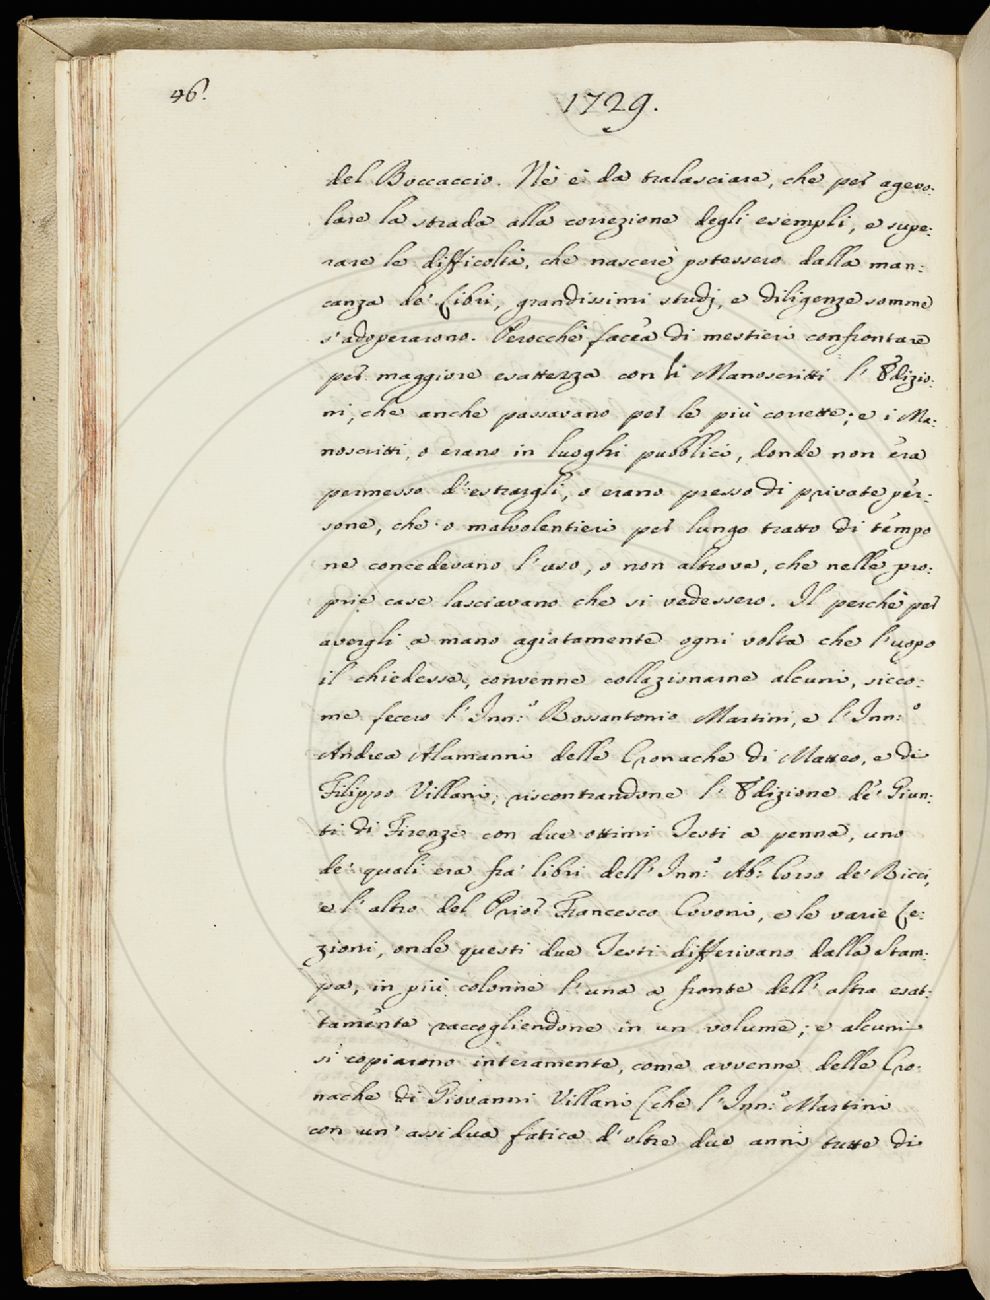 46.
1729.
del Boccaccio. Nè è da tralasciare, che per agevo:
lare la strada alla correzione degli esempli, e supe:
rare le difficoltà, che nascere potessero dalla man:
canza de' Libri, grandissimi studj, e diligenze somme
s'adoperarono. Perocchè facea di mestieri confrontare
per maggiore esattezza con li Manoscritti l'Edizio:
ni, che anche passavano per le più corrette; e i Ma:
noscritti, o erano in luoghi pubblici, donde non era
permesso d'estrargli, o erano presso di private per:
sone, che o malvolentieri per lungo tratto di tempo
ne concedevano l'uso, o non altrove, che nelle pro:
prie case lasciavano che si vedessero. Il perchè per
avergli a mano agiatamente ogni volta che l'uopo
il chiedesse, convenne collazionarne alcuni, sicco:
me fecero l'Inn:º Rossantonio Martini, e l'Inn:º
Andrea Alamanni delle Cronache di Matteo, e di
Filippo Villani, riscontrandone l'Edizione de' Giun:
ti di Firenze con due ottimi Testi a penna, uno
de' quali era fra' libri dell'Inn:º Ab: Corso de' Ricci,
e l'altro del Prior Francesco Covoni, e le varie Le:
zioni, onde questi due Testi differivano dalla Stam:
pa, in più colonne l'una a fronte dell'altra esat:
tamente raccogliendone in un volume; e alcuni
si copiarono interamente, come avvenne delle Cro:
nache di Giovanni Villani (che l'Inn:º Martini
con un'assidua fatica d'oltre due anni tutte di